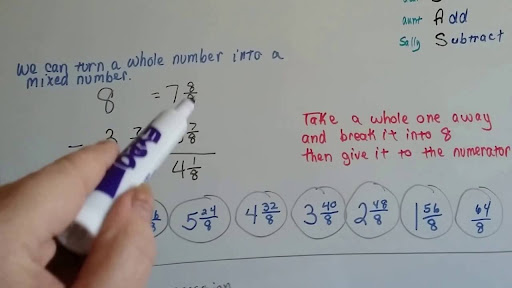 aunt Add
Sally Subtract
We can turn a whole number into a
mixed number.
8 = 7 8/8
- 3 7/8
4 1/8
Take a whole one away
and break it into 8
then give it to the numerator
5 24/8 4 32/8 3 40/8 2 48/8 1 56/8 64/8